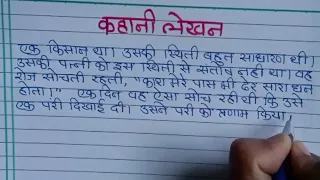 कहानी लेखन
एक किसान था। उसकी स्थिती बहुत साधारण थी।
उसकी पत्नी को इस स्थिती से संतोष नहीं था। वह
रोज सोचती रहती, "काश मेरे पास भी ढेर सारा धन
होता।" एक दिन वह ऐसा सोच रही थी कि उसे
एक परी दिखाई दी। उसने परी को प्रणाम किया